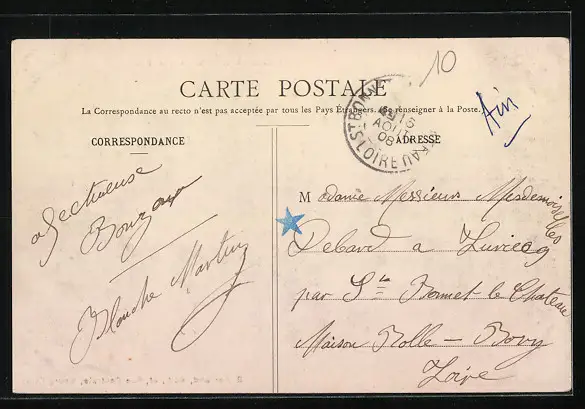 10
Ain
CARTE POSTALE
La Correspondance au recto n'est pas acceptée par tous les Pays Étrangers. Se renseigner à la Poste.
CORRESPONDANCE
ADRESSE
ST BONNET
16
AOUT
08
LOIRE
afectueuse
Blanche Martin
Madame Messieurs Mesdemoiselles
Debard a
par Ste Bonnet le Chateau
Maison Rolle —
Loire